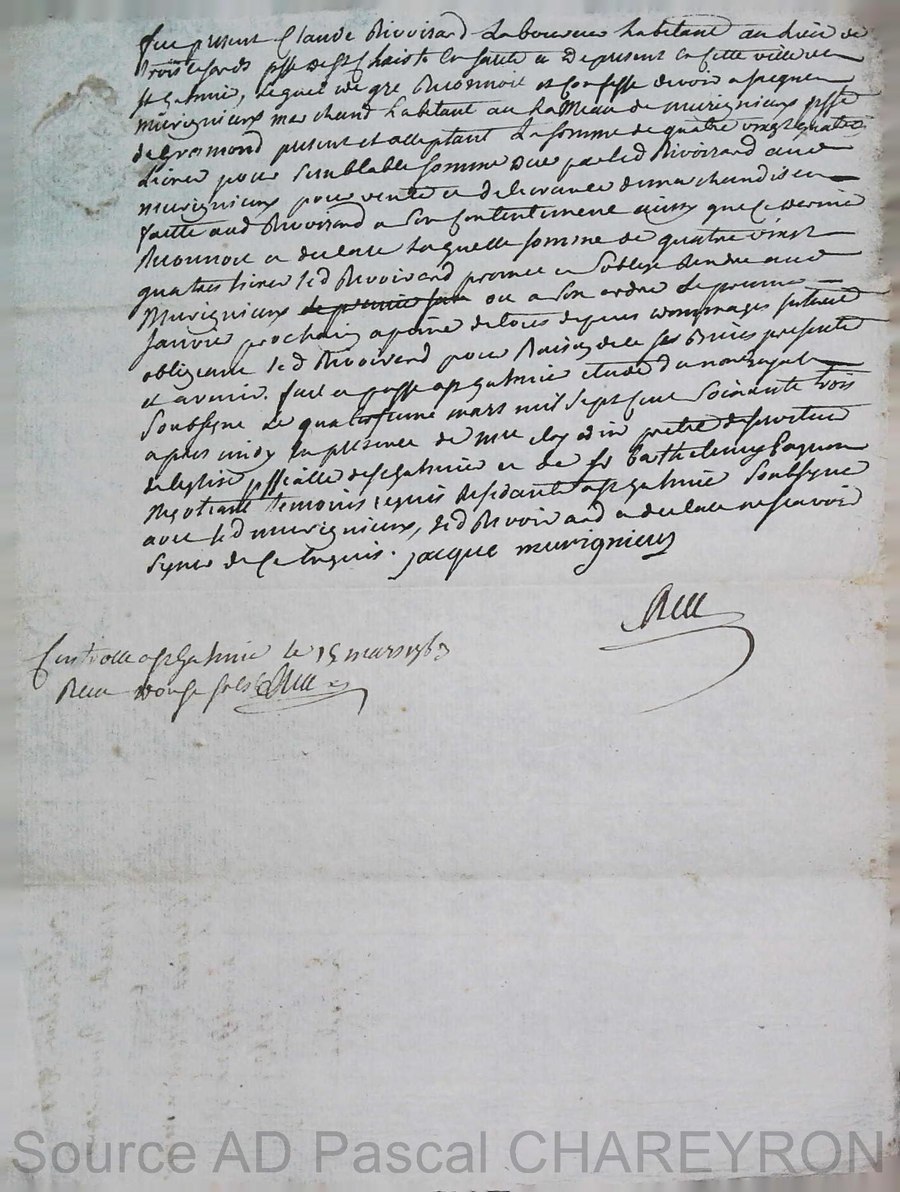 fut present Claude Rivoirard Laboureur habitant au lieu de
trois psse de St Christo en et de present en cette ville de
St galmier, lequel de gré Reconnoit et Confesse devoir a jacques
murignieux marchand habitant au hammeau de murignieux psse
de Gramond present et acceptant La somme de quatre vingt quatre
Livres pour semblable somme due par led Rivoirard aud
murigneux pour vente et delivrance de marchandises
faitte aud Rivoirard a son Contentement ainsy que ce dernier
Reconnoit et declare Laquelle somme de quatre vingt
quatre livres led Rivoirard promet et s'oblige Rendre aud
Murignieux ou a son ordre Le premier
janvier prochain a peine de tous depens dommages interets
obligeant led Rivoirard pour Raison de ce ses Biens presents
et avenir. fait et passé a st galmier etude du not royal
Soubsigné Le quatorsieme mars mil sept cent Soixante trois
apres midy En presence de mre prêtre desserviteur
de leglise pssialle de st galmier et de sr Barthelemy
Negotiant temoins requis Residants a st galmier Soubsignés
avec led murignieux, led Rivoirard a declaré ne scavoir
signer de ce Enquis. jacque murignieux
Controllé a st galmier le 15 mars 1763
Recu sols
Source AD Pascal CHAREYRON